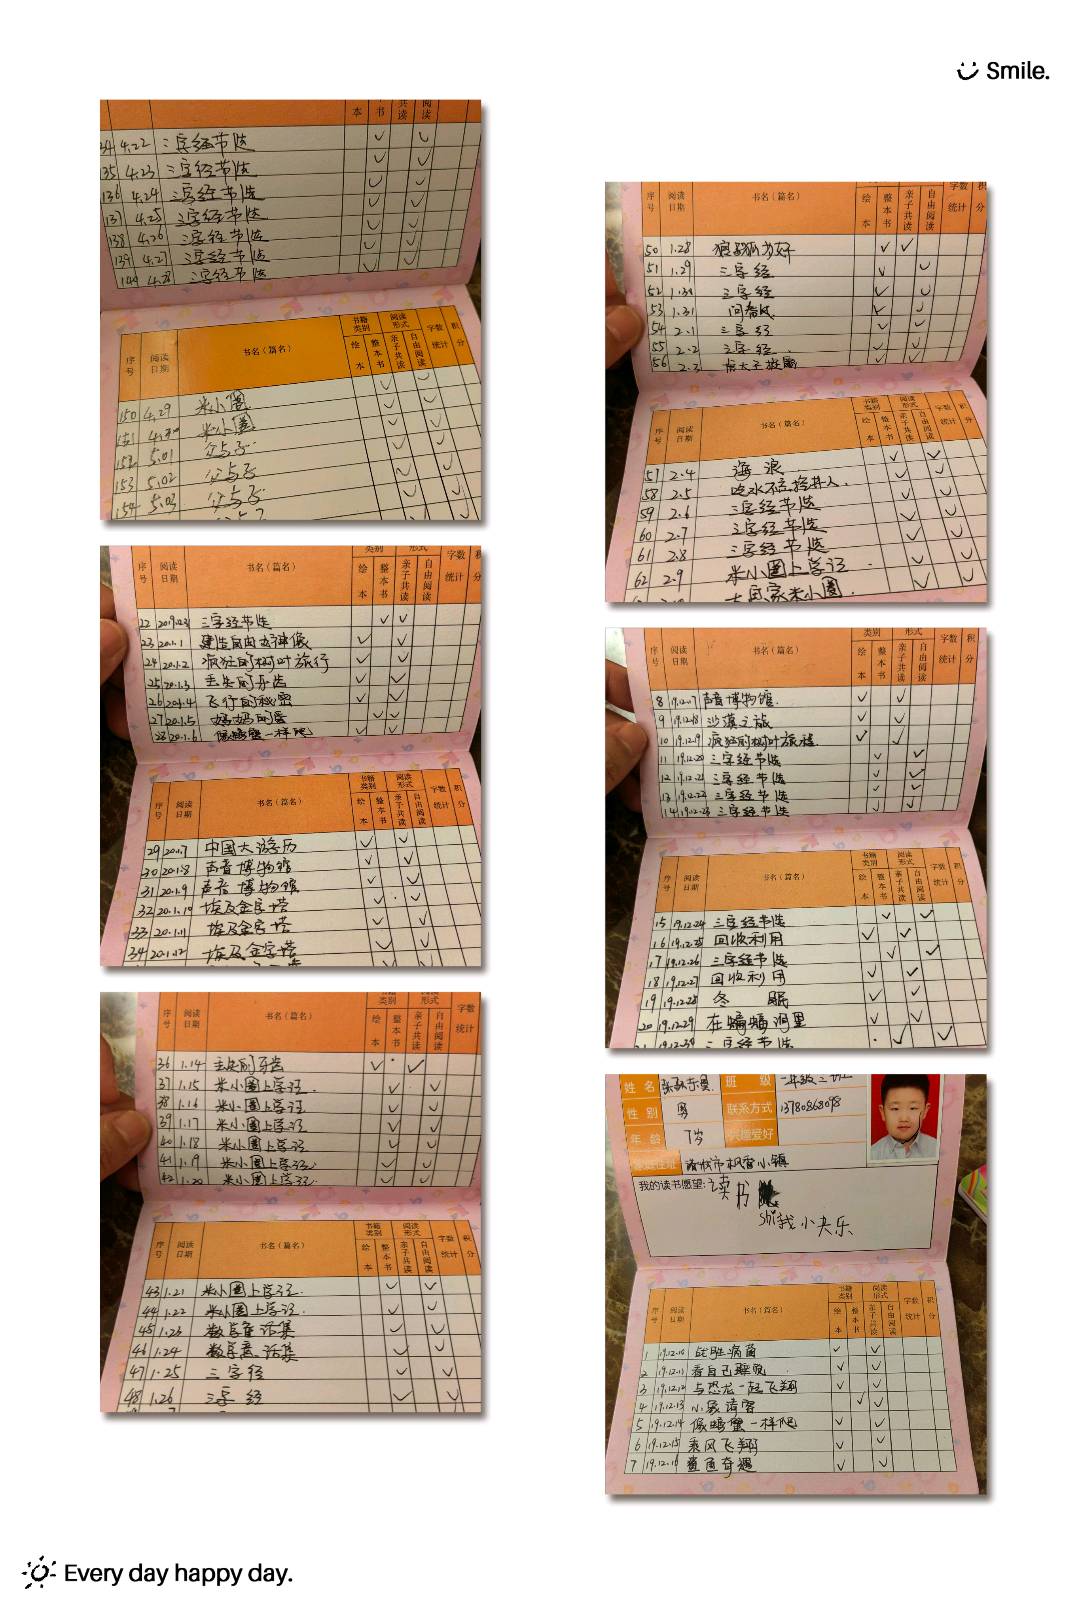 Smile.
本 书 共读 阅读
34 4.22 三字经节选
135 4.23 三字经节选
136 4.24 三字经节选
137 4.25 三字经节选
138 4.26 三字经节选
139 4.27 三字经节选
140 4.28 三字经节选
序号 阅读日期 书名(篇名) 书籍类别 绘本 整本书 阅读形式 亲子共读 自由阅读 字数统计 积分
150 4.29 米小圈
151 4.30 米小圈
152 5.01 父与子
153 5.02 父与子
154 5.03 父与子
序号 阅读日期 书名(篇名) 类别 绘本 整本书 形式 亲子共读 自由阅读 字数统计 积分
22 2019.12.31 三字经节选
23 20.1.1 建造自由女神像
24 20.1.2 疯狂的树叶旅行
25 20.1.3 丢失的牙齿
26 20.1.4 飞行的秘密
27 20.1.5 妈妈的
28 20.1.6 像螃蟹一样爬
序号 阅读日期 书名(篇名) 书籍类别 绘本 整本书 阅读形式 亲子共读 自由阅读 字数统计 积分
29 20.1.7 中国大游历
30 20.1.8 声音博物馆
31 20.1.9 声音博物馆
32 20.1.10 埃及金字塔
33 20.1.11 埃及金字塔
34 20.1.12 埃及金字塔
序号 阅读日期 书名(篇名) 类别 绘本 整本书 形式 亲子共读 自由阅读 字数统计
36 1.14 丢失的牙齿
37 1.15 米小圈上学记
38 1.16 米小圈上学记
39 1.17 米小圈上学记
40 1.18 米小圈上学记
41 1.19 米小圈上学记
42 1.20 米小圈上学记
序号 阅读日期 书名(篇名) 书籍类别 绘本 整本书 阅读形式 亲子共读 自由阅读 字数统计 积分
43 1.21 米小圈上学记
44 1.22 米小圈上学记
45 1.23 数学童话集
46 1.24 数学童话集
47 1.25 三字经
48 1.26 三字经
序号 阅读日期 书名(篇名) 绘本 整本书 亲子共读 自由阅读 字数统计 积分
50 1.28
51 1.29 三字经
52 1.30 三字经
53 1.31
54 2.1 三字经
55 2.2 三字经
56 2.3
序号 阅读日期 书名(篇名) 书籍类别 绘本 整本书 阅读形式 亲子共读 自由阅读 字数统计 积分
57 2.4 海浪
58 2.5 吃水不忘挖井人
59 2.6 三字经节选
60 2.7 三字经节选
61 2.8 三字经节选
62 2.9 米小圈上学记
米小圈
序号 阅读日期 书名(篇名) 类别 绘本 整本书 形式 亲子共读 自由阅读 字数统计 积分
8 19.12.17 声音博物馆
9 19.12.18 沙漠之旅
10 19.12.19 疯狂的树叶旅程
11 19.12.20 三字经节选
12 19.12.21 三字经节选
13 19.12.22 三字经节选
14 19.12.23 三字经节选
序号 阅读日期 书名(篇名) 书籍类别 绘本 整本书 阅读形式 亲子共读 自由阅读 字数统计 积分
15 19.12.24 三字经节选
16 19.12.25 回收利用
17 19.12.26 三字经节选
18 19.12.27 回收利用
19 19.12.28 冬眠
20 19.12.29 在蝙蝠洞里
21 19.12.30 三字经节选
姓名 班级 一年级二班
性别 男 联系方式 13780868098
年龄 7岁 兴趣爱好
家庭住址 诸城市枫香小镇
我的读书愿望: 读书
shi我小夬乐
序号 阅读日期 书名(篇名) 书籍类别 绘本 整本书 阅读形式 亲子共读 自由阅读 字数统计 积分
1 19.12.10 战胜病菌
2 19.12.11 看自己
3 19.12.12 与恐龙一起飞翔
4 19.12.13 小象请客
5 19.12.14 像螃蟹一样爬
6 19.12.15 乘风飞翔
7 19.12.16 鲨鱼奇遇
Every day happy day.